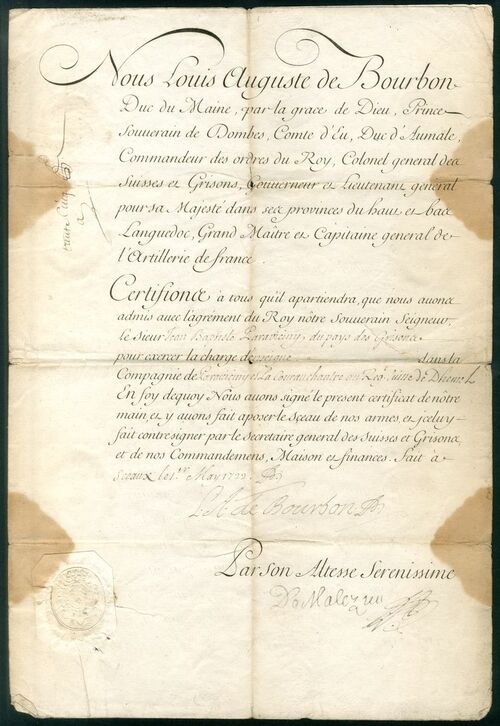 Nous Louis Auguste de Bourbon
Duc du Maine, par la grace de Dieu, Prince
Souuerain de Dombes, Comte d'Eu, Duc d'Aumale,
Commandeur des ordres du Roy, Colonel general des
Suisses et Grisons, Gouuerneur et Lieutenant general
pour sa Majesté dans ses prouinces du haut et bas
Languedoc, Grand Maître et Capitaine general de
l'Artillerie de france.
Certifions à tous qu'il apartiendra, que nous auons
admis auec l'agrément du Roy nôtre Souuerain Seigneur,
le Sieur Jean Baptiste Parauiciny du pays des Grisons
pour exercer la charge d'enseigne dans la
Compagnie de Parauiciny et La Cour au Reg. Suisse de
En foy dequoy Nous auons signé le present certificat de nôtre
main, et y auons fait aposer le sceau de nos armes, et iceluy
fait contresigner par le Secretaire general des Suisses et Grisons,
et de nos Commandemens, Maison et finances. Fait à
Sceaux le 1.er May 1722.
L. A. de Bourbon
Par Son Altesse Serenissime
De Malezieu